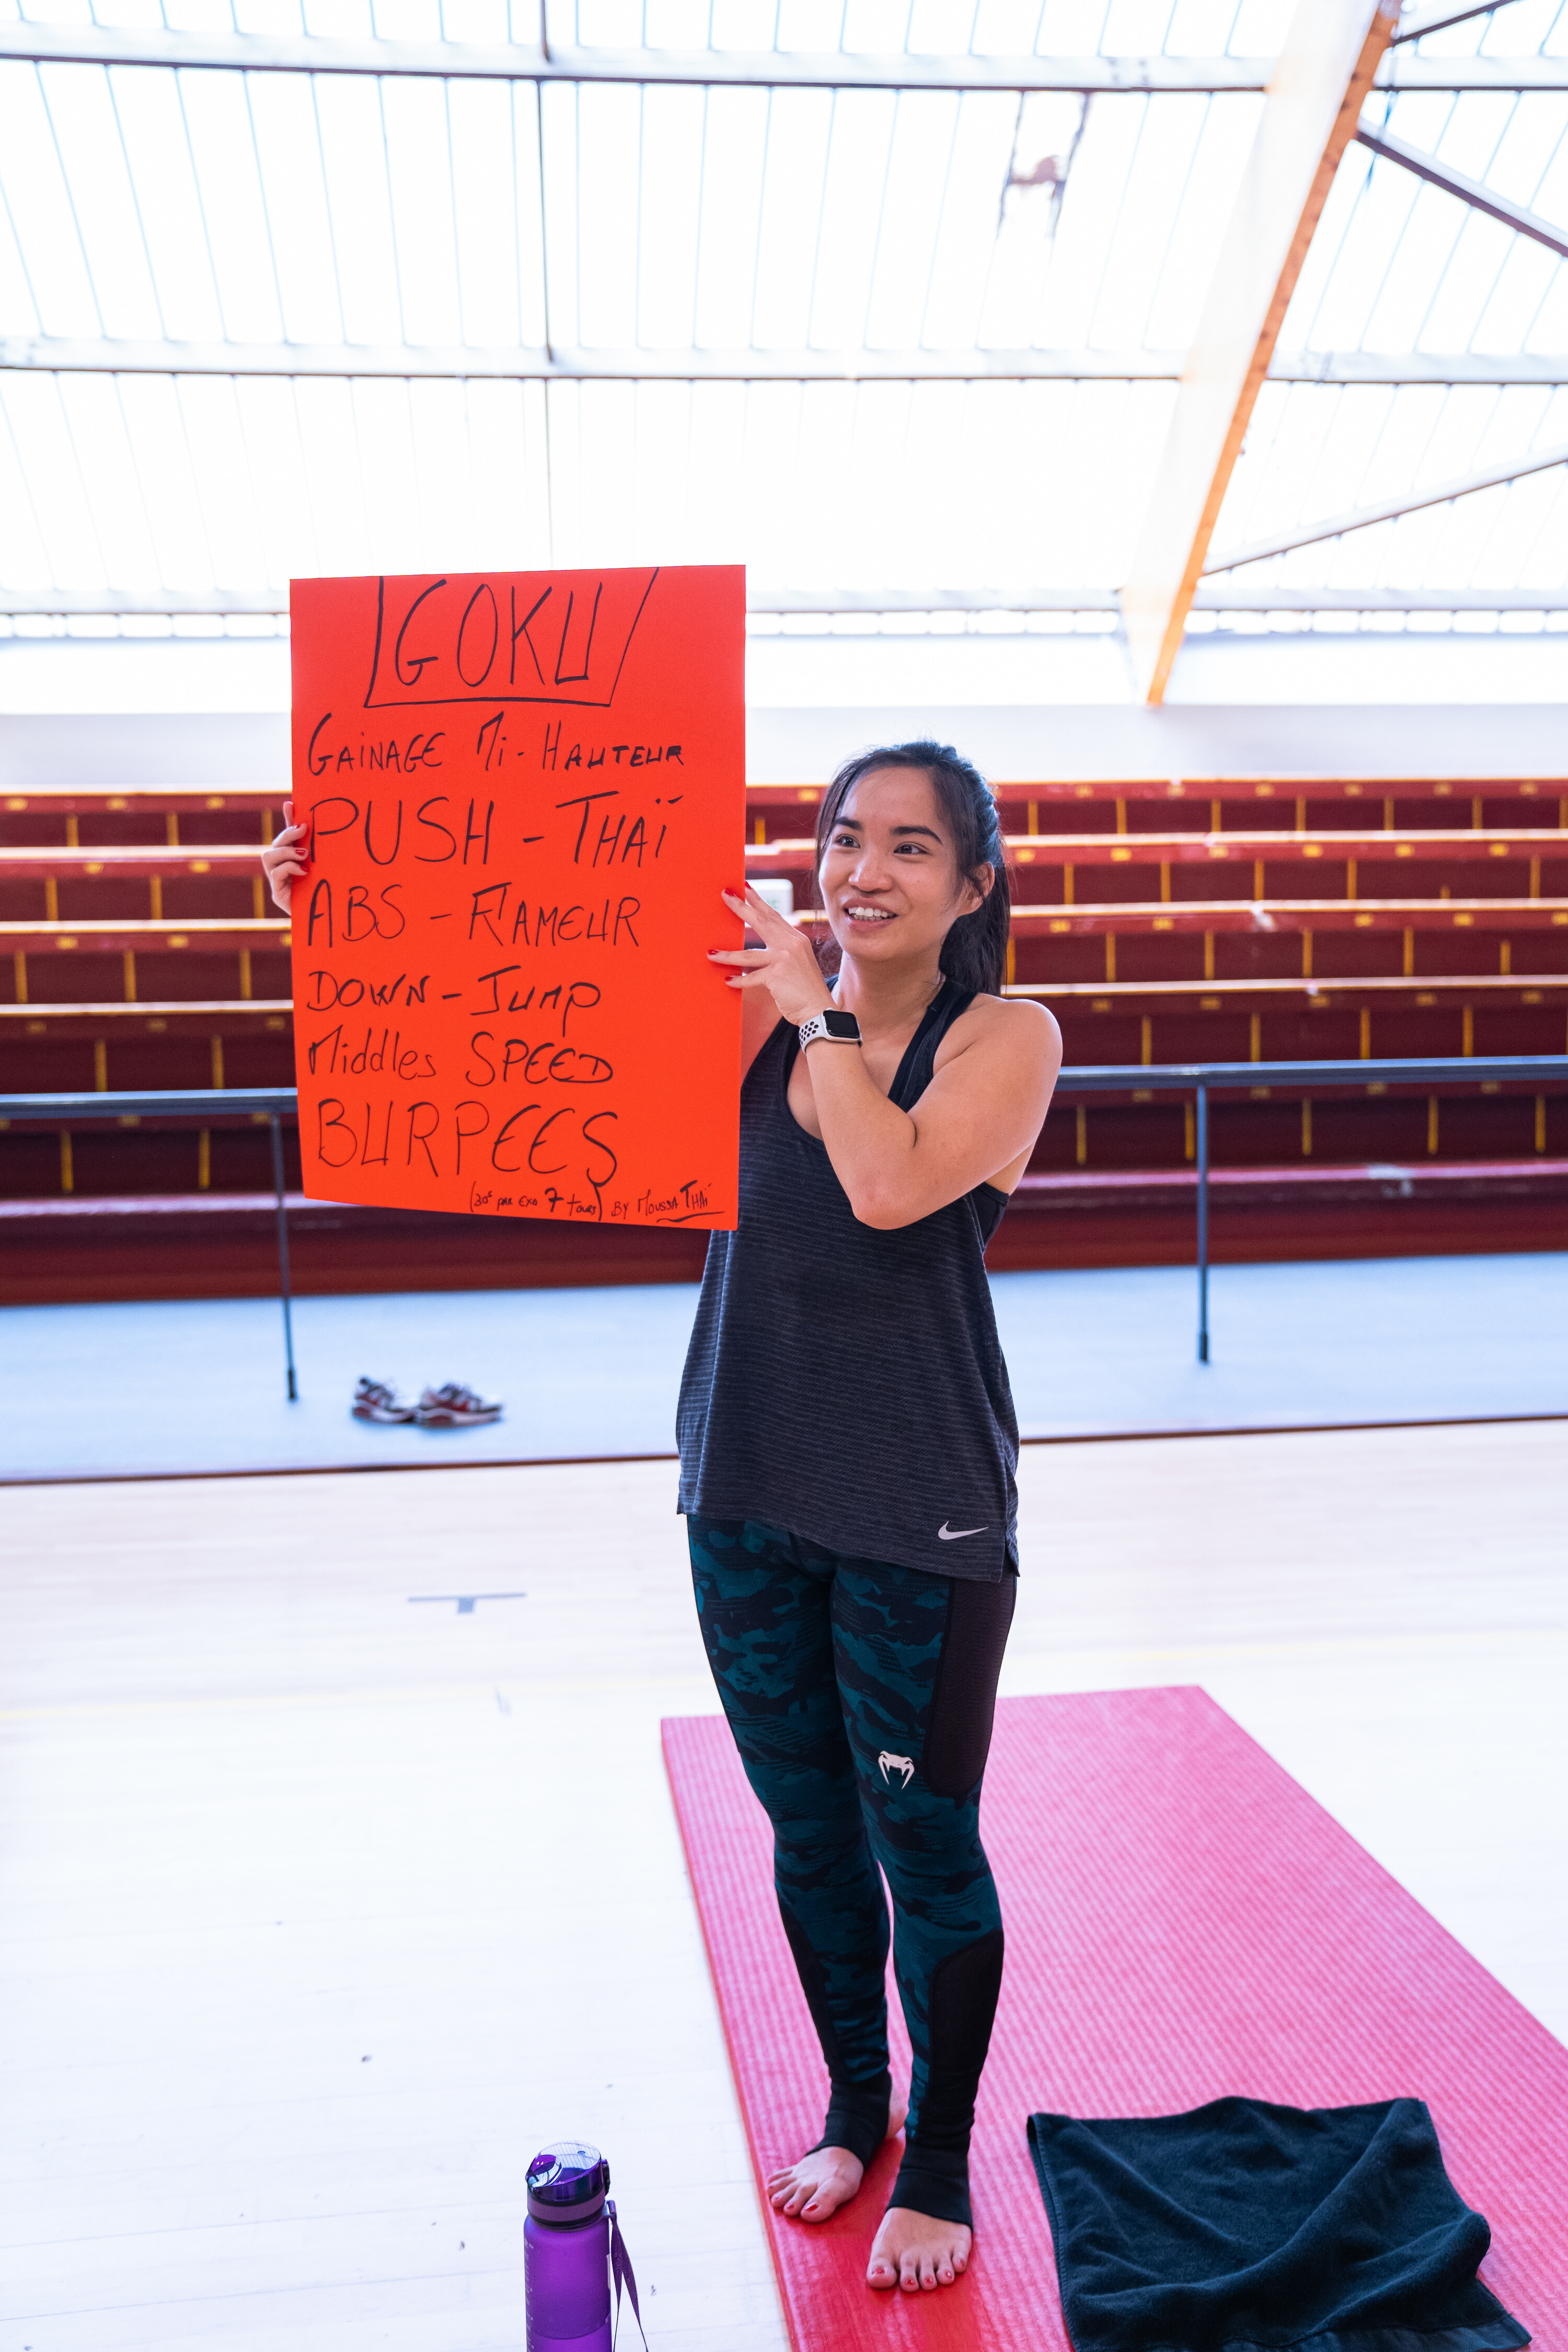 GOKU
GAINAGE Mi-HAUTEUR
PUSH-THAÏ
ABS-RAMEUR
DOWN-JUMP
Middles SPEED
BURPEES
(30s par exo 7 tours) BY MOUSSA THAÏ